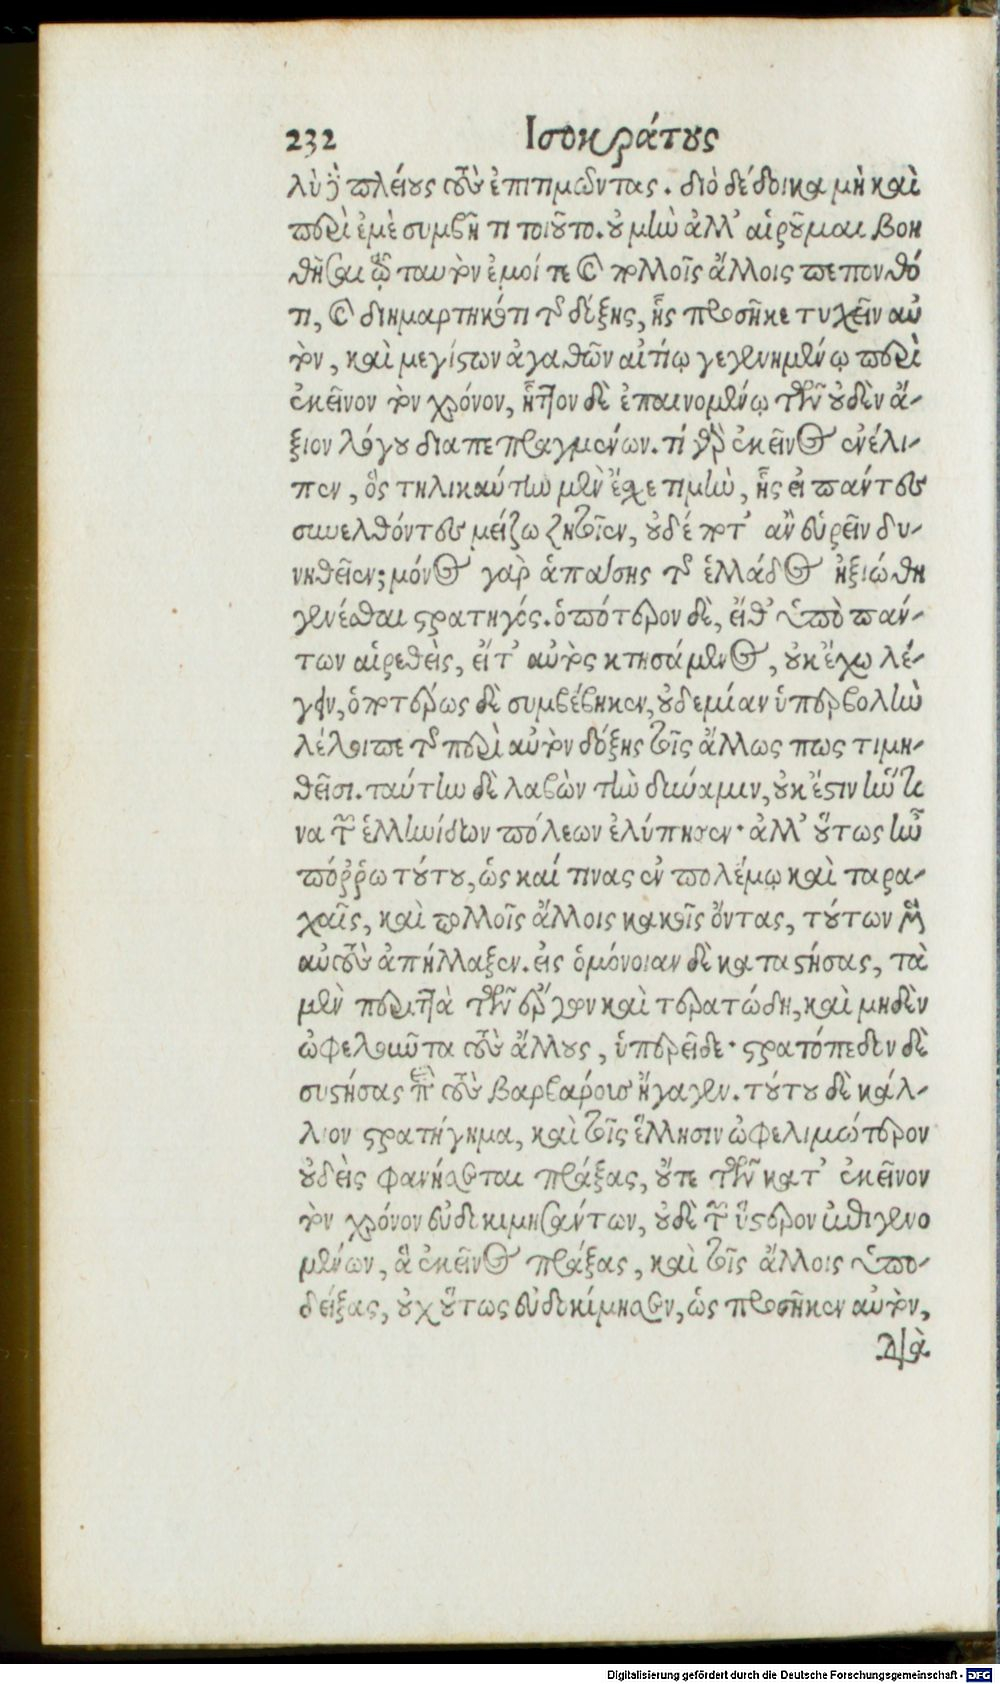 232 Ισοκράτους
λὺ δὲ πλείους τοὺς ἐπιτιμῶντας. διὸ δέδοικα μὴ καὶ
περὶ ἐμὲ συμβῇ τι τοιοῦτο. οὐ μὴν ἀλλ' αἱροῦμαι βοη
θῆσαι τῷ ταυτὸν ἐμοί τε καὶ πολλοῖς ἄλλοις πεπονθό
τι, καὶ διημαρτηκότι τῆς δόξης, ἧς προσῆκε τυχεῖν αὐ
τὸν, καὶ μεγίστων ἀγαθῶν αἰτίῳ γεγενημένῳ περὶ
ἐκεῖνον τὸν χρόνον, ἧττον δὲ ἐπαινουμένῳ τῶν οὐδὲν ἄ-
ξιον λόγου διαπεπραγμένων. τί γὰρ ἐκεῖνος ἐνέλι-
πεν, ὃς τηλικαύτην μὲν ἔχε τιμὴν, ἧς εἰ πάντες
συνελθόντες μείζω ζητοῖεν, οὐδέποτ' ἂν εὑρεῖν δυ-
νηθεῖεν; μόνος γὰρ ἁπάσης τῆς ἑλλάδος ἠξιώθη
γενέσθαι στρατηγός. ὁπότερον δὲ, εἴθ' ὑπὸ πάν-
των αἱρεθεὶς, εἴτ' αὐτὸς κτησάμενος, οὐκ ἔχω λέ-
γειν, ὁποτέρως δὲ συμβέβηκεν, οὐδεμίαν ὑπερβολὴν
λέλοιπε τῆς περὶ αὐτὸν δόξης τοῖς ἄλλως πως τιμη-
θεῖσι. ταύτην δὲ λαβὼν τὴν δύναμιν, οὐκ ἔστιν ἥν τι
να τῶν ἑλληνίδων πόλεων ἐλύπησεν· ἀλλ' οὕτως ἦν
πόῤῥω τούτου, ὡς καί τινας ἐν πολέμῳ καὶ ταρα-
χαῖς, καὶ πολλοῖς ἄλλοις κακοῖς ὄντας, τούτων μὲν
αὐτοὺς ἀπήλλαξεν. εἰς ὁμόνοιαν δὲ καταστήσας, τὰ
μὲν περιττὰ τῶν ἔργων καὶ τερατώδη, καὶ μηδὲν
ὠφελοῦντα τοὺς ἄλλους, ὑπερεῖδε· στρατόπεδον δὲ
συστήσας ἐπὶ τοὺς βαρβάρους ἤγαγεν. τούτου δὲ κάλ-
λιον στρατήγημα, καὶ τοῖς ἕλλησιν ὠφελιμώτερον
οὐδεὶς φανήσεται πράξας, οὔτε τῶν κατ' ἐκεῖνον
τὸν χρόνον εὐδοκιμησάντων, οὐδὲ τῶν ὕστερον ἐπιγενο
μένων, ἃ ἐκεῖνος πράξας, καὶ τοῖς ἄλλοις ὑπο-
δείξας, οὐχ οὕτως εὐδοκίμησεν, ὡς προσῆκεν αὐτὸν,
διὰ
Digitalisierung gefördert durch die Deutsche Forschungsgemeinschaft - DFG